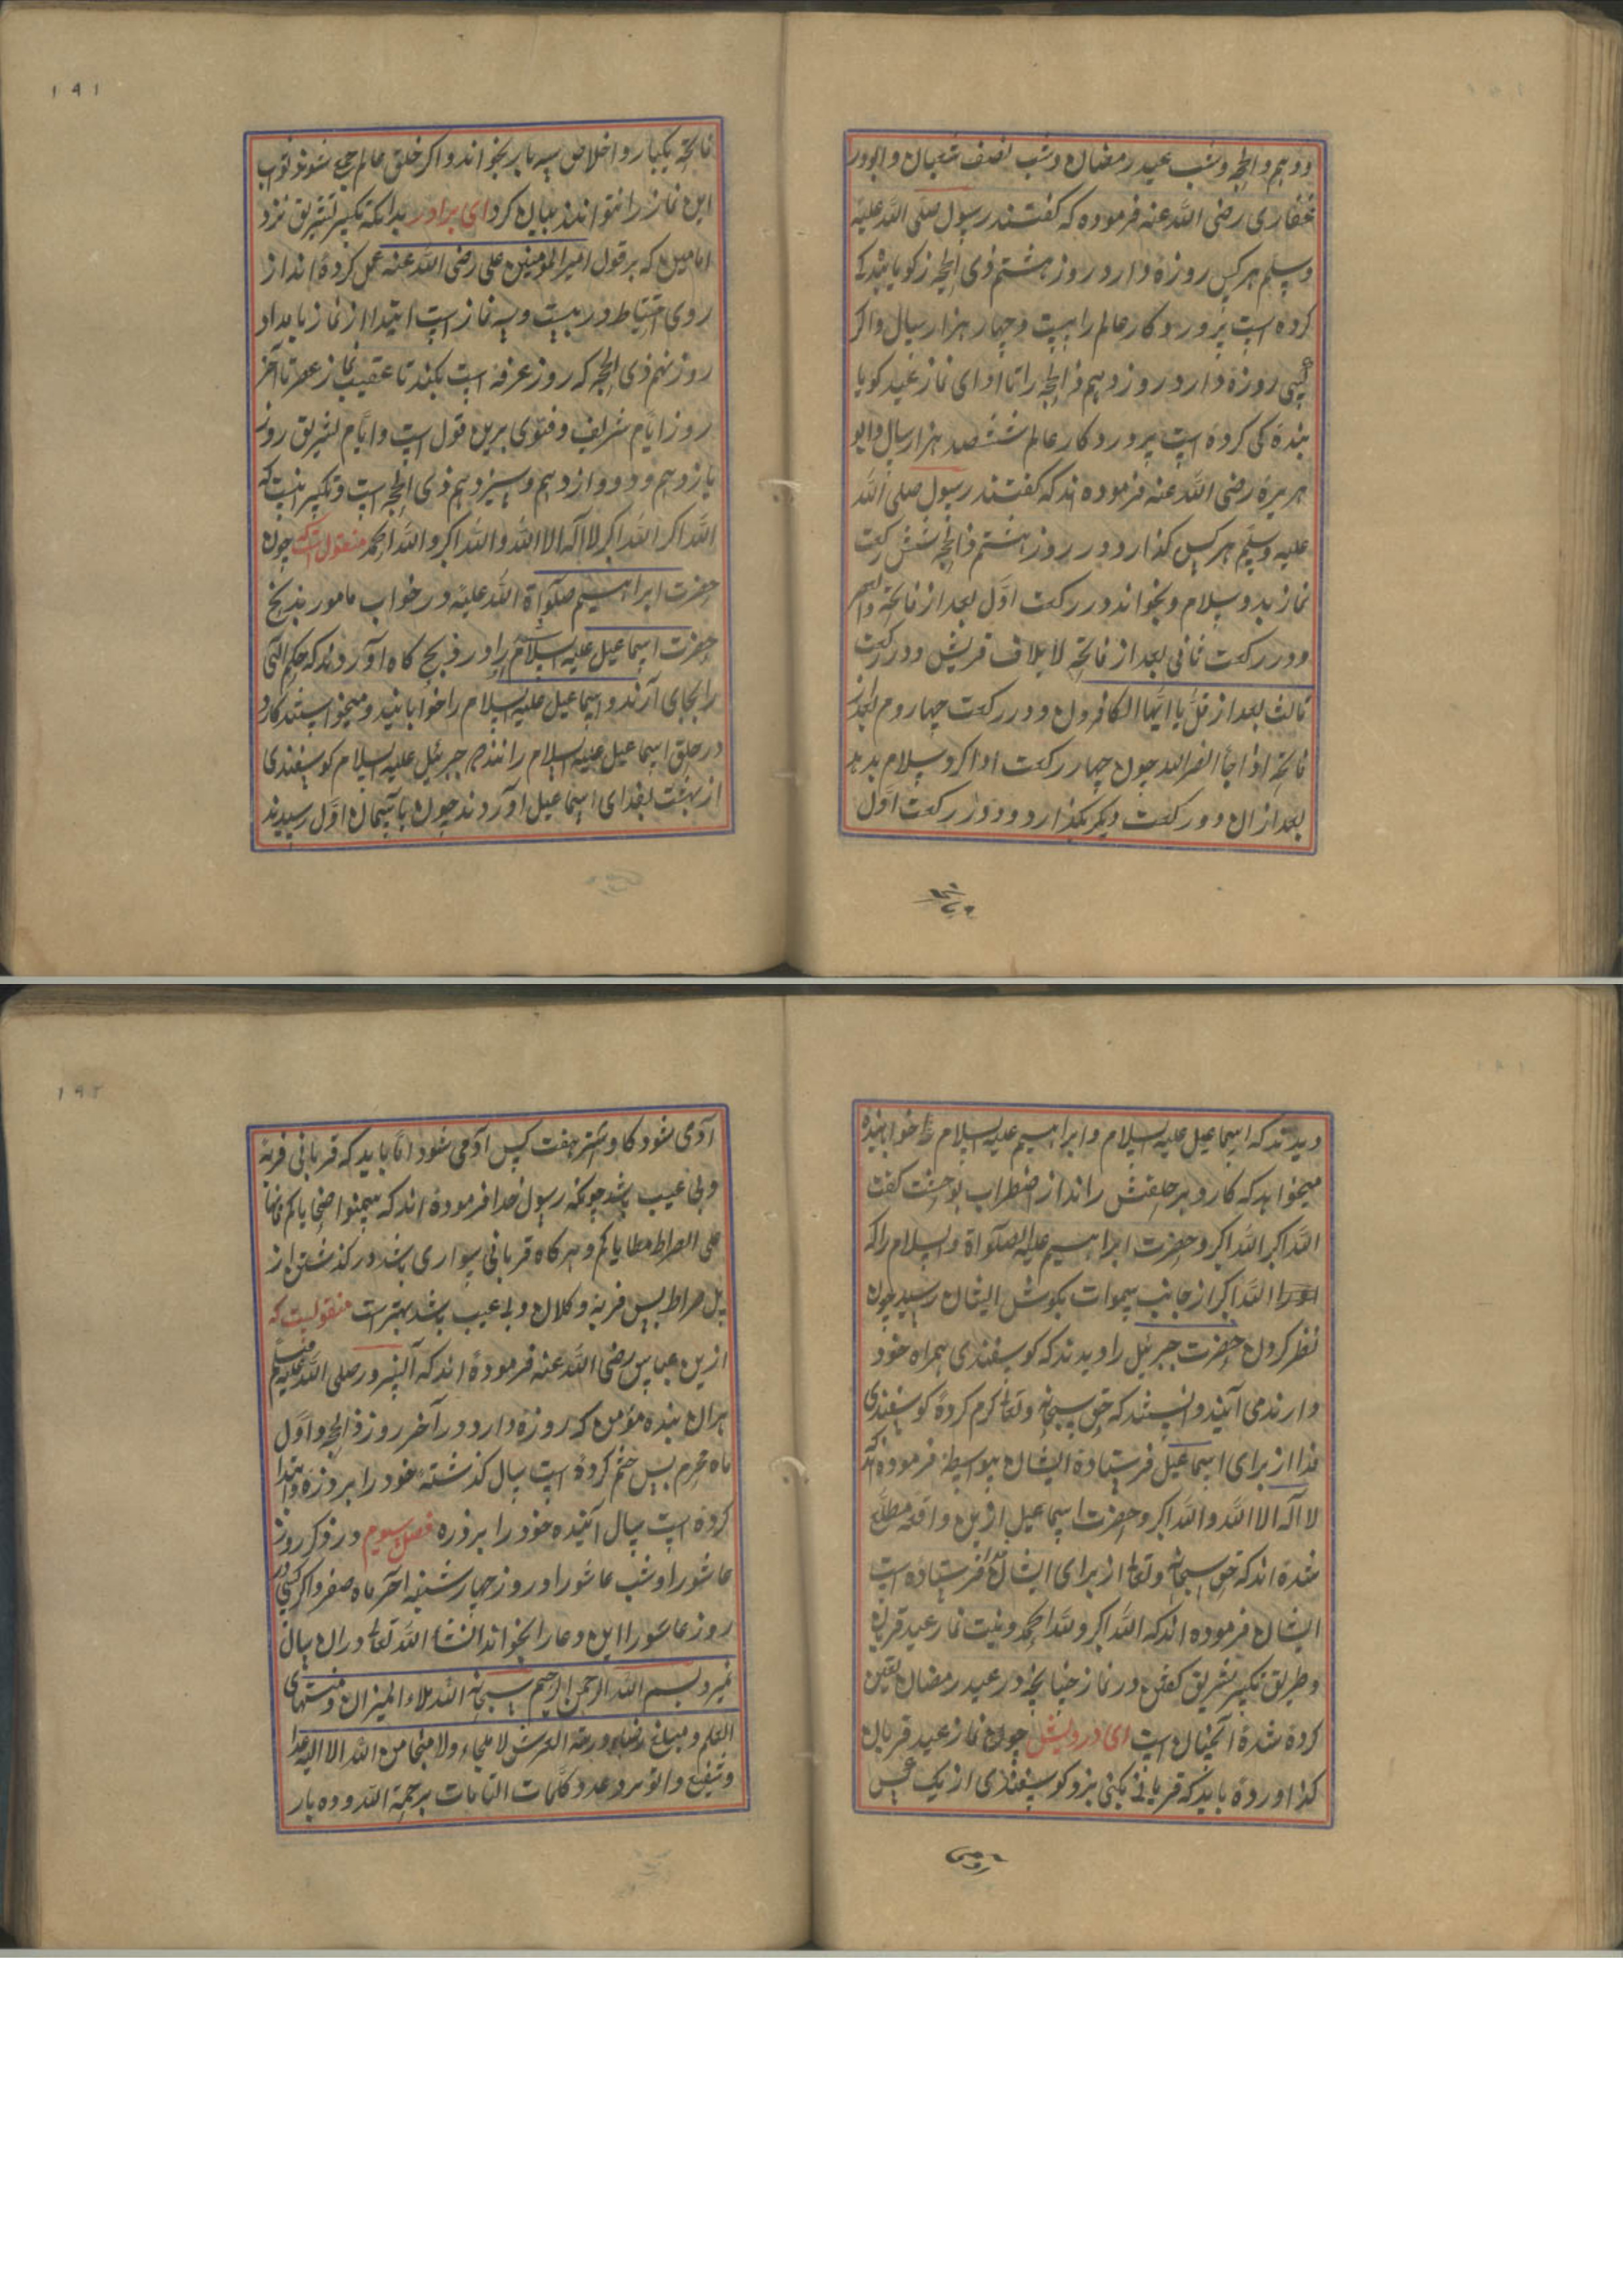 ۱۹۱
دوهم ذوالحجه و شب عید رمضان و شب نصف شعبان و ابوذر
غفاری رضی الله عنه فرموده که گفتند رسول صلی الله علیه
وسلم هر کس روزه دارد روز هشتم ذی الحجه ز کویا بندکی
کرده است پرورد کار عالم را بیست و چهار هزار سال واکر
کسی روزه دارد روز دهم ذالحجه را تا ادای نماز عید کویا
بنده کی کرده است پرورد کار عالم ششصد هزار سال و ابو
هریره رضی الله عنه فرموده اند که گفتند رسول صلی الله
علیه وسلم هر کس کذارد در روز هشتم ذالحجه شش رکعت
نماز بدو سلام و بخواند در رکعت اول بعد از فاتحه والعصر
و در رکعت ثانی بعد از فاتحه لایلاف قریش و در رکعت
ثالث بعد از قل یا ایها الکافرون و در رکعت چهاروم بعد از
فاتحه اذا جا نصر الله چون چهار رکعت ادا کرد سلام بدهد
بعد ازان دو رکعت دیکر بکذارد و در رکعت اول
فاتحه
فاتحه یکبار و اخلاص سه بار بخواند و اکر خلق عالم جمع شوند ثواب
این نماز را نتوانند بیان کرد ای برادر بدانکه تکبیر تشریق نزد
امامین که بر قول امیر المومنین علی رضی الله عنه عمل کرده اند از
روی احتیاط در بیست و سه نماز است ابتدا از نماز بامداد
روز نهم ذی الحجه که روز عرفه است بکند تا عقیب نماز عصر تا آخر
روز ایام شریف و فتوی برین قول است و ایام تشریق روز
یازدهم و دووازدهم و سیزدهم ذی الحجه است و تکبیر اینست که
الله اکبر الله اکبر لا اله الا الله والله اکبر ولله الحمد منقول است که چون
حضرت ابراهیم صلواة الله علیه در خواب مامور بذبح
حضرت اسماعیل علیه السلام را در ذبح کاه آوردند که حکم الهی
را بجای آرند و اسماعیل علیه السلام را خوابانید و میخواستند کارد
در حلق اسماعیل علیه السلام رانند جبرئیل علیه السلام کوسفندی
از بهشت بفدای اسماعیل آوردند چون باسمان اول رسیدند
دیدند که اسماعیل علیه السلام و ابراهیم علیه السلام خوابانیده
میخواهد که کارد بر حلقش راند از اضطراب بوحشت گفت
الله اکبر الله اکبر و حضرت ابراهیم علیه الصلواة والسلام را که
الله اکبر از جانب سموات بکوش ایشان رسید چون
نظر کردن حضرت جبرئیل را دیدند که کوسفندی همراه خود
دارند می آیند دانستند که حق سبحانه وتعالی کرم کرده کوسفندی
فدا از برای اسماعیل فرستاده ایشان بواسطه فرموده اند که
لا اله الا الله والله اکبر و حضرت اسماعیل ازین واقعه مطلع
شده اند که حق سبحانه وتعالی از برای ایشان فدا فرستاده است
ایشان فرموده اند که الله اکبر ولله الحمد و نیت نماز عید قربان
و طریق تکبیر تشریق گفتن در نماز چنانچه در عید رمضان تعین
کرده شده آنچنان است ای درویش چون نماز عید قربان
کذاورده باید که قربانی بکنی بز و کوسفندی از یک کس
۱۹۲
آدمی شود کاو و شتر هفت کس آدمی شود اما باید که قربانی فربه
و بی عیب باشد چونکه رسول خدا فرموده اند که سمنوا ضحایاکم فانها
علی الصراط مطایاکم و هر کاه قربانی سواری باشد در کذشتن از
پل صراط پس فربه و کلان و بی عیب باشد بهتر است منقولست که
ازین عباس رضی الله عنه فرموده اند که آنسرور صلی الله علیه وسلم
هران بنده مؤمن که روزه دارد در آخر روز ذالحجه و اول
ماه محرم پس ختم کرده است سال کذشته خود را بروزه و ابتدا
کرده است سال آئینده خود را بروزه فصل سیوم در ذکر روز
عاشورا و شب عاشورا و روز چهارشنبه آخر ماه صفر و اکر کسی در
روز عاشورا این دعا را بخواند انشا الله تعالی دران سال
نمیرد بسم الله الرحمن الرحیم سبحان الله ملاء المیزان و منتهای
العلم و مبلغ رضاء و زنة العرش لا ملجاء ولا منجا من الله الا الیه عدد
وشفع والوتر و عدد کلمات التامات برحمة الله و ده بار